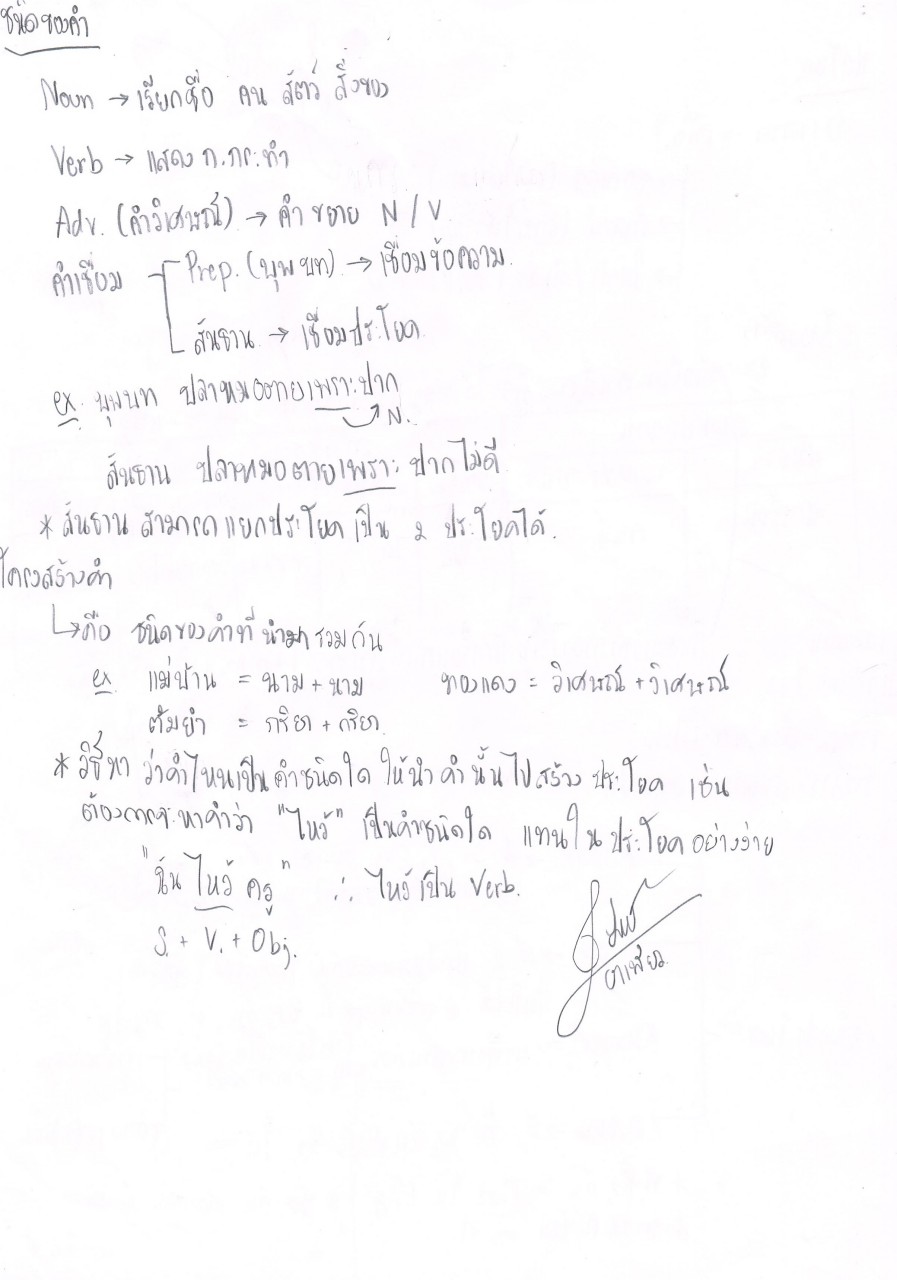 ชนิดของคำ
Noun → เรียกชื่อ คน สัตว์ สิ่งของ
Verb → แสดง ก.กระทำ
Adv. (คำวิเศษณ์) → คำขยาย N / V
คำเชื่อม Prep. (บุพบท) → เชื่อมข้อความ.
สันธาน → เชื่อมประโยค.
ex. บุพบท ปลาหมอตายเพราะปาก
N.
สันธาน ปลาหมอตายเพราะ ปากไม่ดี
* สันธาน สามารถแยกประโยคเป็น 2 ประโยคได้.
โครงสร้างคำ
↳ คือ ชนิดของคำที่นำมารวมกัน
ex. แม่บ้าน = นาม + นาม ทองแดง = วิเศษณ์ + วิเศษณ์
ต้มยำ = กริยา + กริยา
* วิธีหา ว่าคำไหนเป็นคำชนิดใด ให้นำ คำนั้นไปสร้าง ประโยค เช่น
ต้องการจะหาคำว่า "ไหว้" เป็นคำชนิดใด แทนในประโยคอย่างง่าย
"ฉัน ไหว้ ครู" ∴ ไหว้เป็น Verb.
S. + V. + Obj.